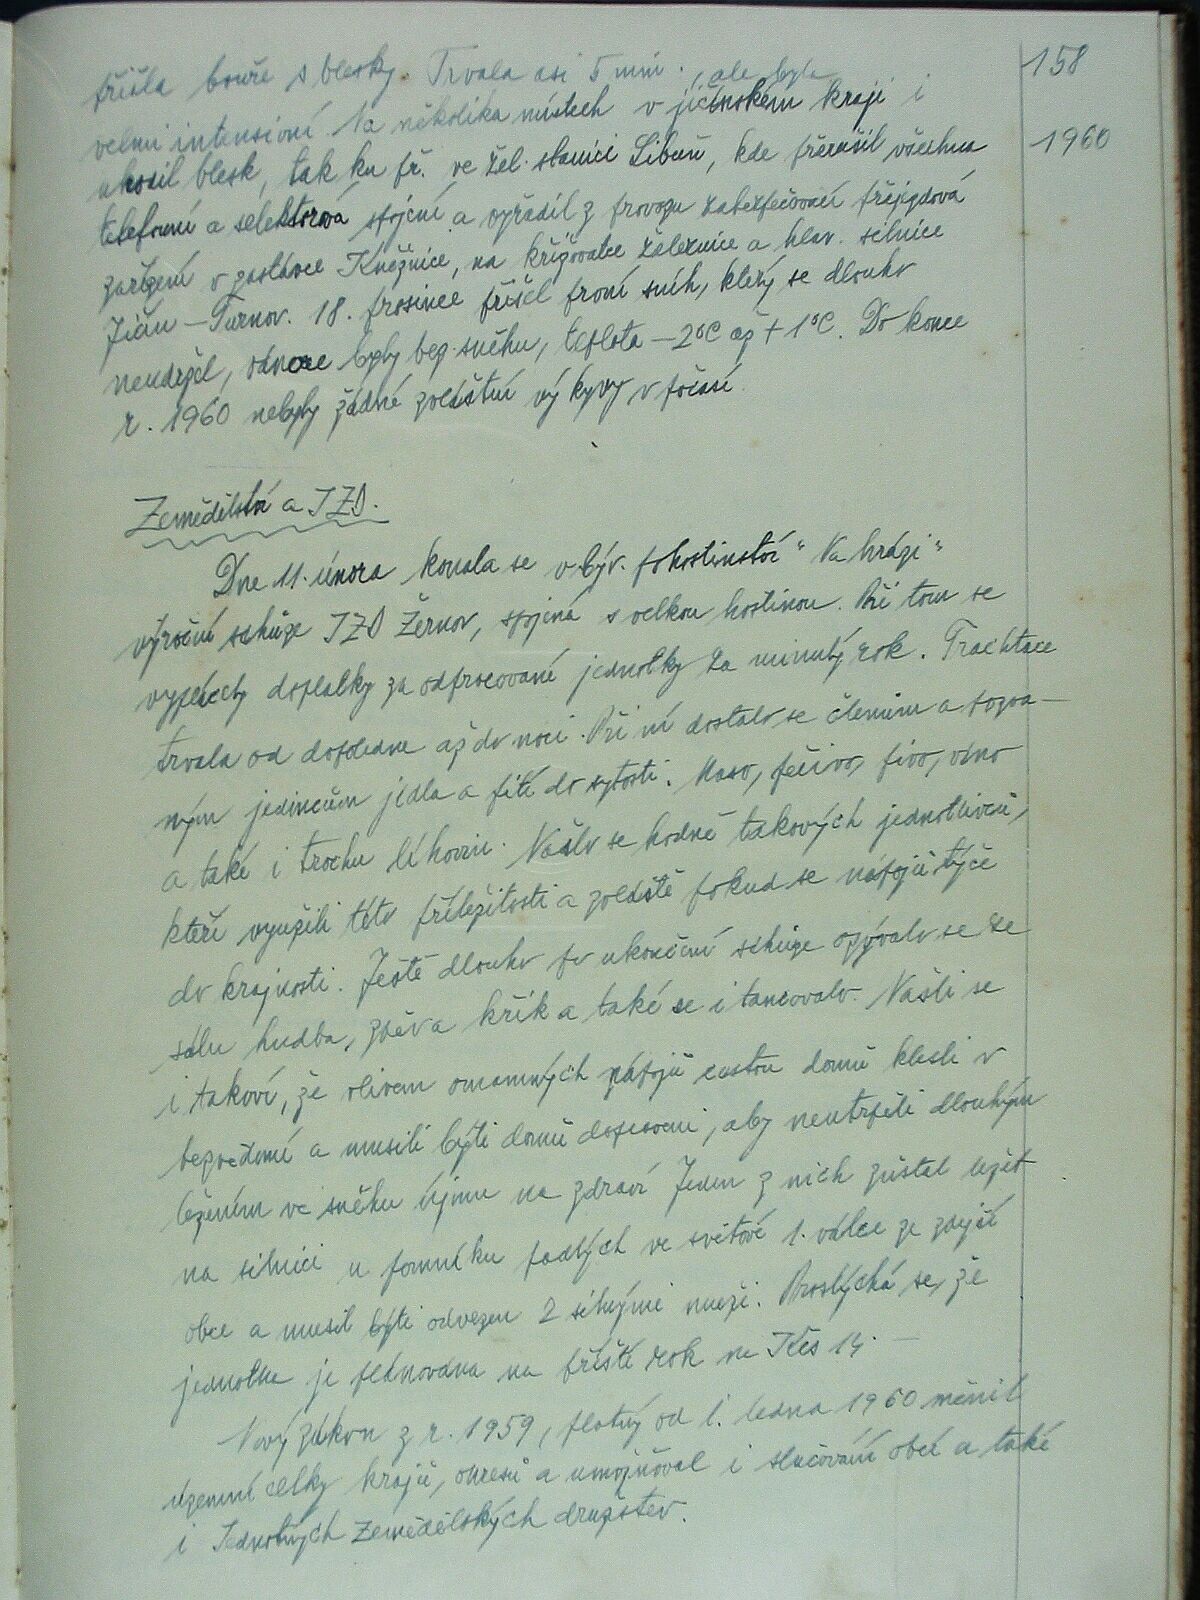 158
přišla bouře s blesky. Trvala asi 5 min., ale byla
velmi intensivní. Na několika místech v jičínském kraji i
uhodil blesk, tak ku př. ve žel. stanici Libuň, kde přerušil všechna
1960
telefonní a selektorová spojení a vyřadil z provozu zabezpečovací přejezdová
zařízení v zastávce Kněžnice, na křižovatce železnice a hlav. silnice
Jičín – Turnov. 18. prosince přišel první sníh, který se dlouho
neudržel, vánoce byly bez sněhu, teplota – 2°C až + 1°C. Do konce
r. 1960 nebyly žádné zvláštní výkyvy v počasí.
Zemědělství a JZD.
Dne 11. února konala se v býv. pohostinství "Na hrázi"
výroční schůze JZD Žernov, spojená s velkou hostinou. Při tom se
vyplácely doplatky za odpracované jednotky za minulý rok. Trachtace
trvala od dopoledne až do noci. Při ní dostalo se členům a pozva-
ným jedincům jídla a pití do sytosti. Maso, pečivo, pivo, víno
a také i trochu lihovin. Našlo se hodně takových jednotlivců,
kteří využili této příležitosti a zvláště pokud se nápojů týče
do krajnosti. Ještě dlouho po ukončení schůze ozývalo se ze
sálu hudba, zpěv a křik a také se i tancovalo. Našli se
i takoví, že vlivem omamných nápojů cestou domů klesli v
bezvědomí a musili býti domů dopraveni, aby neutrpěli dlouhým
ležením ve sněhu újmu na zdraví. Jeden z nich zůstal ležet
na silnici u pomníku padlých ve světové 1. válce ze zdejší
obce a musil býti odvezen 2 silnými muži. Proslýchá se, že
jednotka je plánována na příští rok na Kčs 14.-
Nový zákon z r. 1959, platný od 1. ledna 1960 měnil
územní celky krajů, okresů a umožňoval i slučování obcí a také
i Jednotných zemědělských družstev.